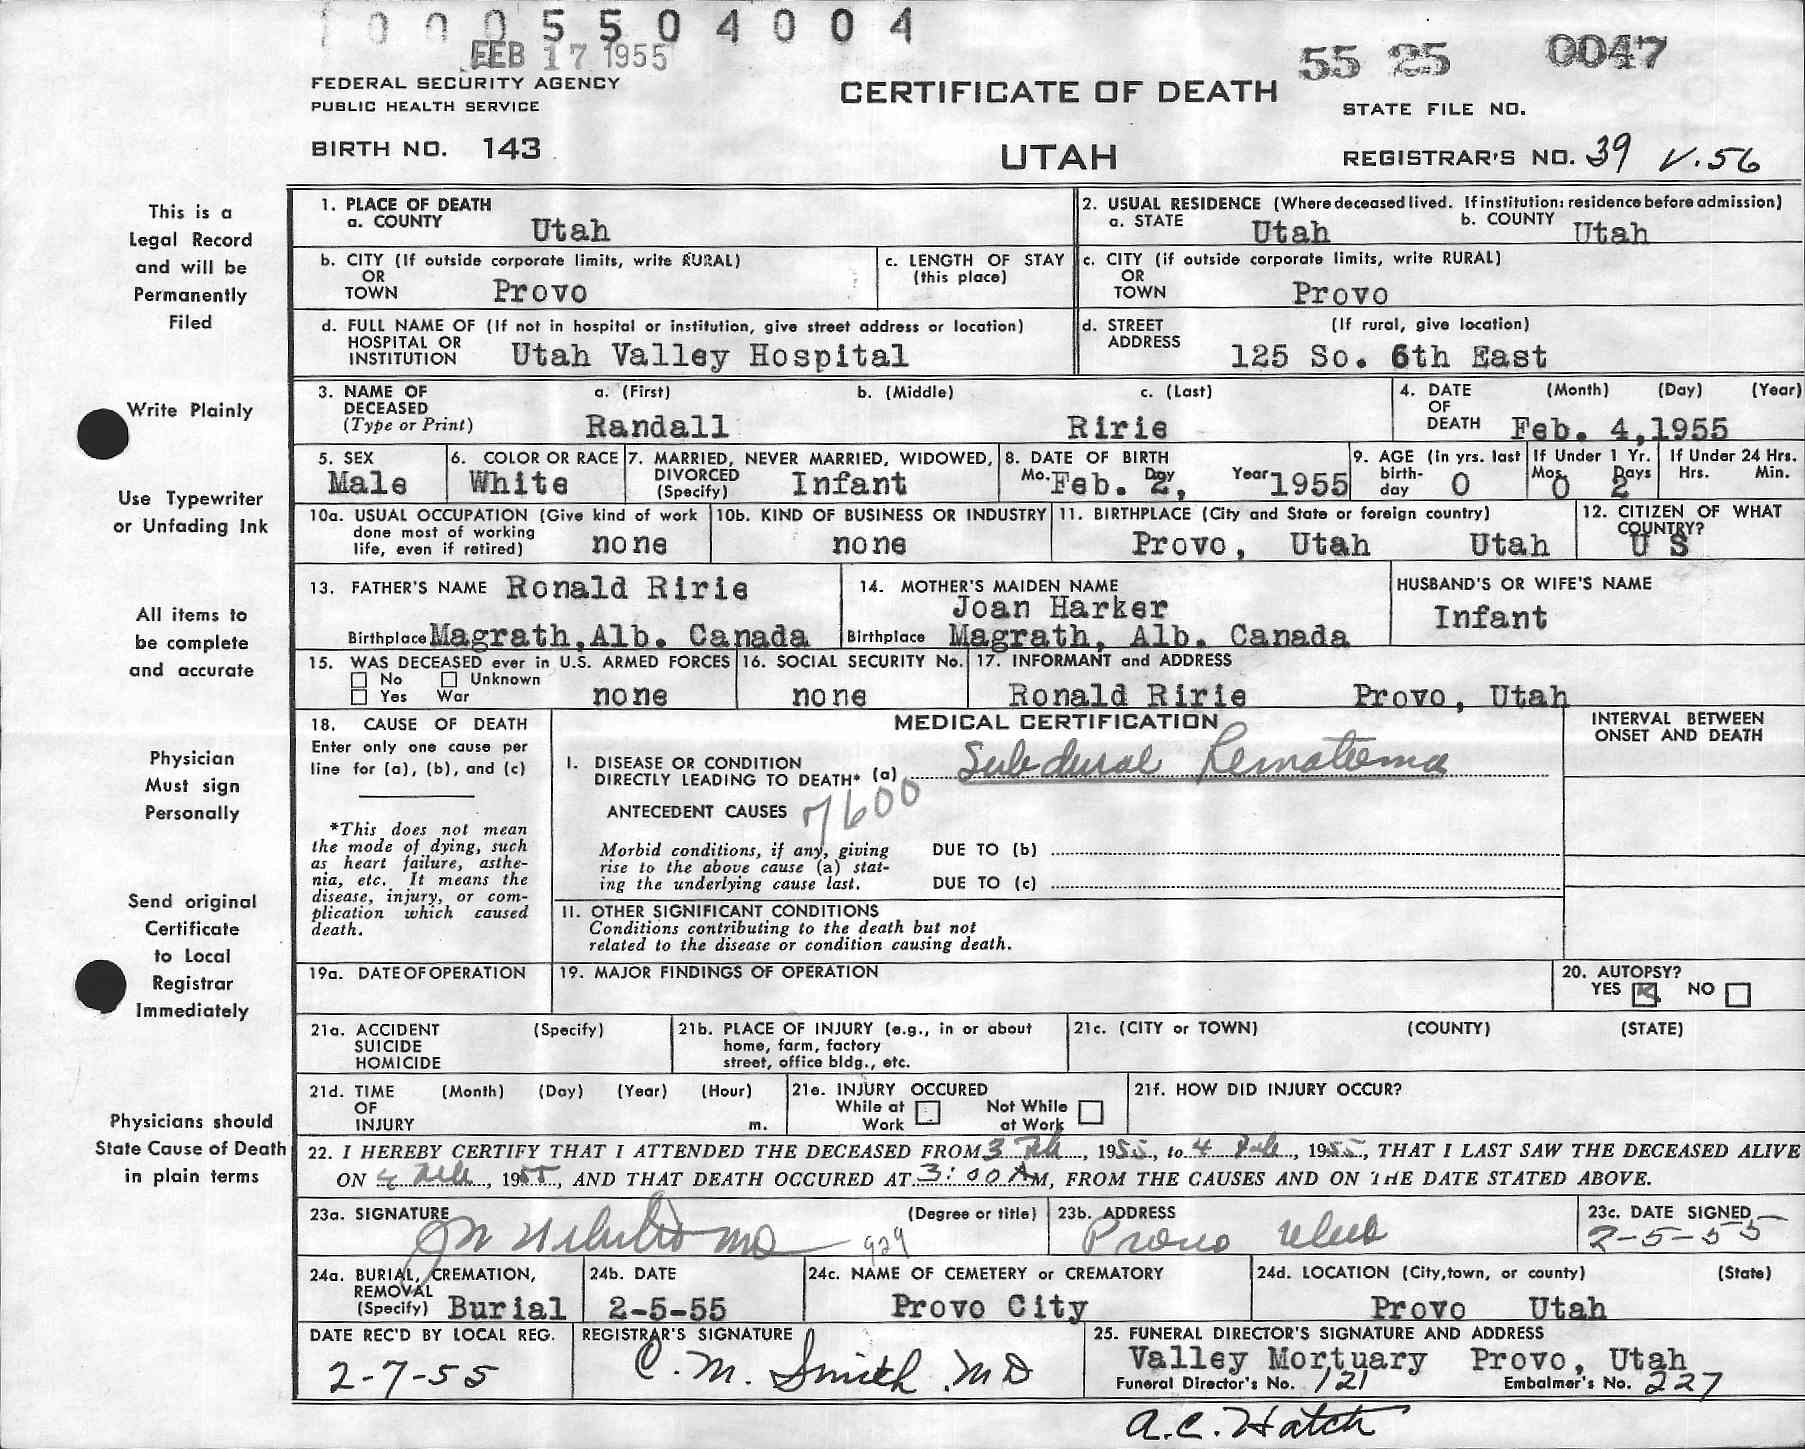 1 0 0 0 5 5 0 4 0 0 4
FEB 17 1955
55 25 0047
FEDERAL SECURITY AGENCY
PUBLIC HEALTH SERVICE
CERTIFICATE OF DEATH
STATE FILE NO.
BIRTH NO. 143
UTAH
REGISTRAR'S NO. 39 V.56
This is a
Legal Record
and will be
Permanently
Filed
Write Plainly
Use Typewriter
or Unfading Ink
All items to
be complete
and accurate
Physician
Must sign
Personally
Send original
Certificate
to Local
Registrar
Immediately
Physicians should
State Cause of Death
in plain terms
1. PLACE OF DEATH
a. COUNTY Utah
2. USUAL RESIDENCE (Where deceased lived. If institution: residence before admission)
a. STATE Utah b. COUNTY Utah
b. CITY (If outside corporate limits, write RURAL)
OR
TOWN Provo
c. LENGTH OF STAY
(this place)
c. CITY (if outside corporate limits, write RURAL)
OR
TOWN Provo
d. FULL NAME OF (If not in hospital or institution, give street address or location)
HOSPITAL OR
INSTITUTION Utah Valley Hospital
d. STREET (If rural, give location)
ADDRESS 125 So. 6th East
3. NAME OF a. (First) b. (Middle) c. (Last)
DECEASED
(Type or Print) Randall Ririe
4. DATE (Month) (Day) (Year)
OF
DEATH Feb. 4,1955
5. SEX
Male
6. COLOR OR RACE
White
7. MARRIED, NEVER MARRIED, WIDOWED,
DIVORCED
(Specify) Infant
8. DATE OF BIRTH
Mo. Feb. Day 2, Year 1955
9. AGE (in yrs. last
birth-
day 0
If Under 1 Yr.
Mos. 0 Days 2
If Under 24 Hrs.
Hrs. Min.
10a. USUAL OCCUPATION (Give kind of work
done most of working
life, even if retired) none
10b. KIND OF BUSINESS OR INDUSTRY
none
11. BIRTHPLACE (City and State or foreign country)
Provo, Utah Utah
12. CITIZEN OF WHAT
COUNTRY?
U S
13. FATHER'S NAME Ronald Ririe
Birthplace Magrath,Alb. Canada
14. MOTHER'S MAIDEN NAME
Joan Harker
Birthplace Magrath, Alb. Canada
HUSBAND'S OR WIFE'S NAME
Infant
15. WAS DECEASED ever in U.S. ARMED FORCES
No Unknown
Yes War none
16. SOCIAL SECURITY No.
none
17. INFORMANT and ADDRESS
Ronald Ririe Provo, Utah
18. CAUSE OF DEATH
Enter only one cause per
line for (a), (b), and (c)
*This does not mean
the mode of dying, such
as heart failure, asthe-
nia, etc. It means the
disease, injury, or com-
plication which caused
death.
MEDICAL CERTIFICATION
INTERVAL BETWEEN
ONSET AND DEATH
I. DISEASE OR CONDITION
DIRECTLY LEADING TO DEATH* (a) Subdural Hematoma
ANTECEDENT CAUSES 7600
Morbid conditions, if any, giving
rise to the above cause (a) stat-
ing the underlying cause last.
DUE TO (b)
DUE TO (c)
II. OTHER SIGNIFICANT CONDITIONS
Conditions contributing to the death but not
related to the disease or condition causing death.
19a. DATE OF OPERATION
19. MAJOR FINDINGS OF OPERATION
20. AUTOPSY?
YES NO
21a. ACCIDENT (Specify)
SUICIDE
HOMICIDE
21b. PLACE OF INJURY (e.g., in or about
home, farm, factory
street, office bldg., etc.
21c. (CITY or TOWN) (COUNTY) (STATE)
21d. TIME (Month) (Day) (Year) (Hour)
OF
INJURY m.
21e. INJURY OCCURED
While at Not While
Work at Work
21f. HOW DID INJURY OCCUR?
22. I HEREBY CERTIFY THAT I ATTENDED THE DECEASED FROM 3 Feb, 1955, to 4 Feb, 1955, THAT I LAST SAW THE DECEASED ALIVE
ON 4 Feb, 1955, AND THAT DEATH OCCURED AT 3:00 AM, FROM THE CAUSES AND ON THE DATE STATED ABOVE.
23a. SIGNATURE (Degree or title)
MD 929
23b. ADDRESS
Provo Utah
23c. DATE SIGNED
2-5-55
24a. BURIAL, CREMATION,
REMOVAL
(Specify) Burial
24b. DATE
2-5-55
24c. NAME OF CEMETERY or CREMATORY
Provo City
24d. LOCATION (City, town, or county) (State)
Provo Utah
DATE REC'D BY LOCAL REG.
2-7-55
REGISTRAR'S SIGNATURE
C. M. Smith MD
25. FUNERAL DIRECTOR'S SIGNATURE AND ADDRESS
Valley Mortuary Provo, Utah
Funeral Director's No. 121 Embalmer's No. 227
A.C. Hatch